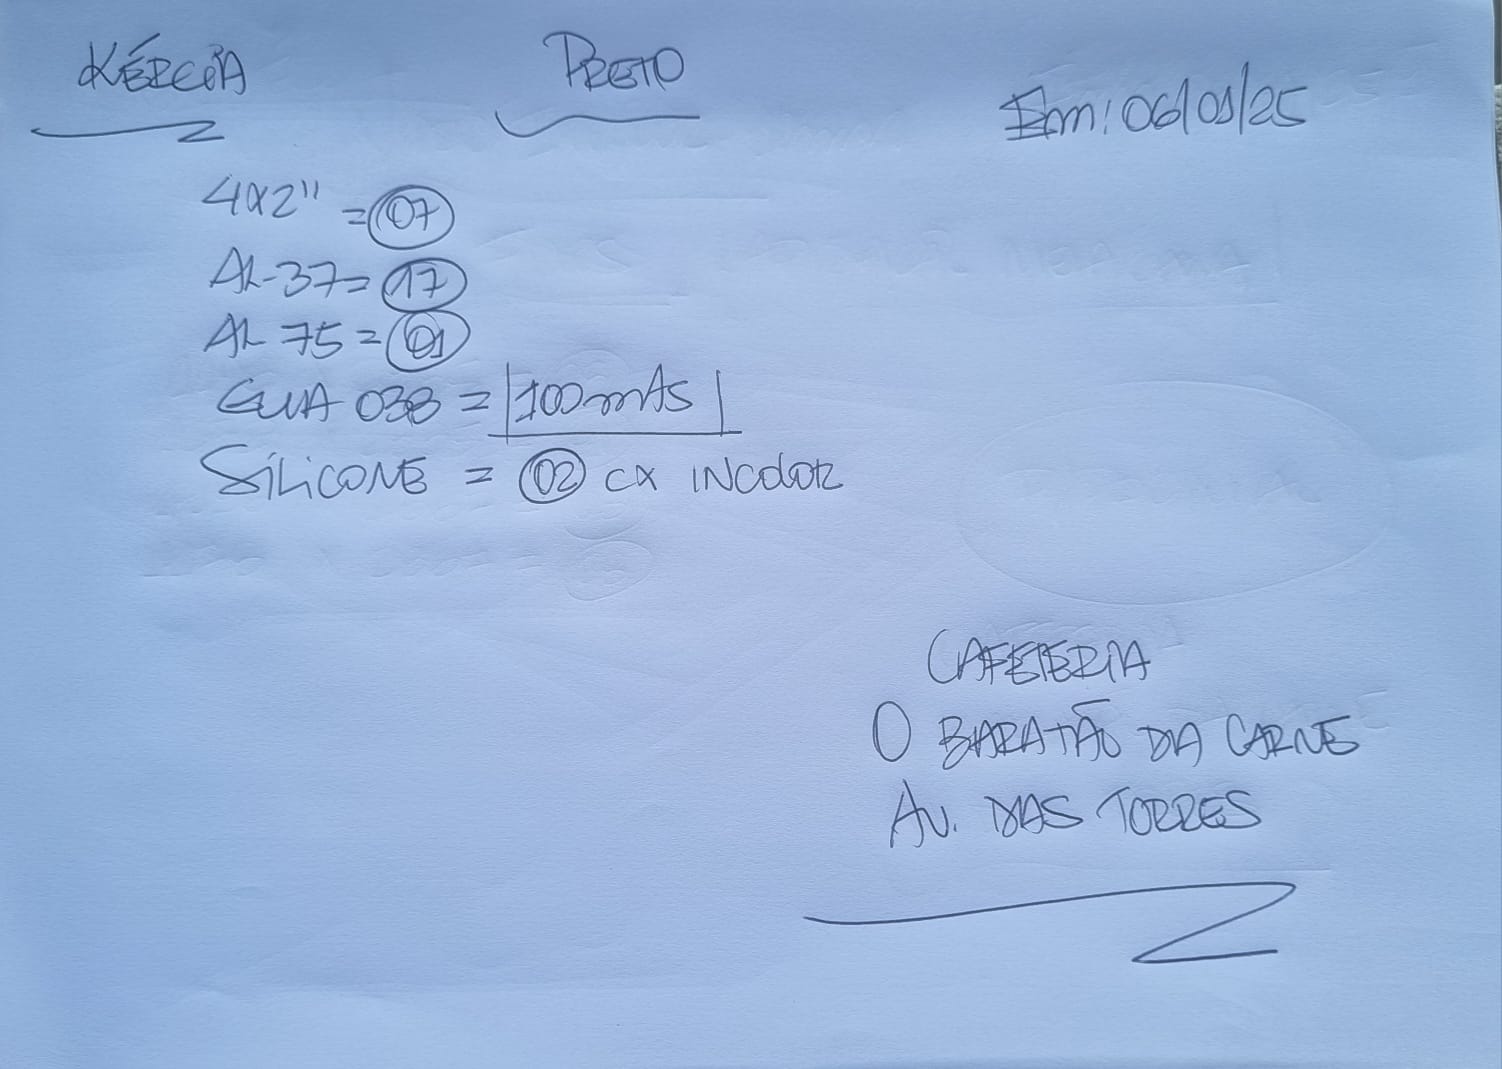 KÉRCIA PRETO Em: 06/01/25
4x2" = 07
AL-37 = 17
AL 75 = 01
GUIA 038 = 100 mts
SILICONE = 02 CX INCOLOR
CAFETERIA
O BARATÃO DA CARNE
AV. DAS TORRES